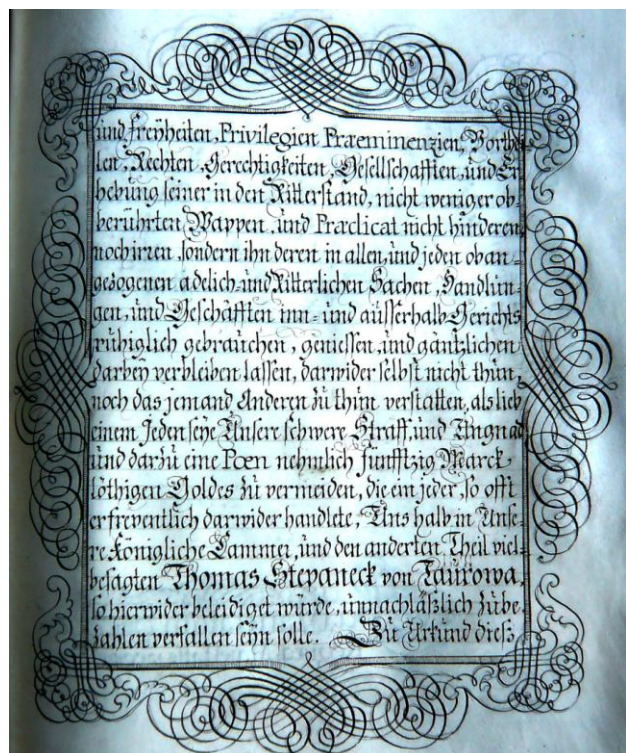 und Freÿheiten, Privilegien Præeminenzien, Borthei-
len, Rechten, Gerechtigkeiten, Gesellschafften, und Er-
hebung seiner in den Ritterstand, nicht weniger ob-
berührten Wappen, und Prædicat nicht hinderen,
noch irren, sondern ihn deren in allen, und jeden oban-
gezogenen adelich- und Ritterlichen Sachen, Handlun-
gen, und Geschäfften inn- und ausserhalb Gerichts
ruhiglich gebrauchen, geniessen, und gäntzlichen
darbeÿ verbleiben lassen, darwider selbst nicht thun,
noch das jemand Anderen zu thun verstatten, als lieb
einem Jeden seÿe Unsere schwere Straff, und Ungnad,
und darzu eine Poen nehmlich funfftzig Marck
löthigen Goldes zu vermeiden, die ein jeder, so offt
er freventlich darwider handlete, Uns halb in Unse-
re Königliche Cammer, und den anderten Theil viel-
besagten Thomas Stepaneck von Taurowa,
so hierwider beleidiget würde, unnachläßlich zu be-
zahlen verfallen seÿn solle. Zu Urkund dieß